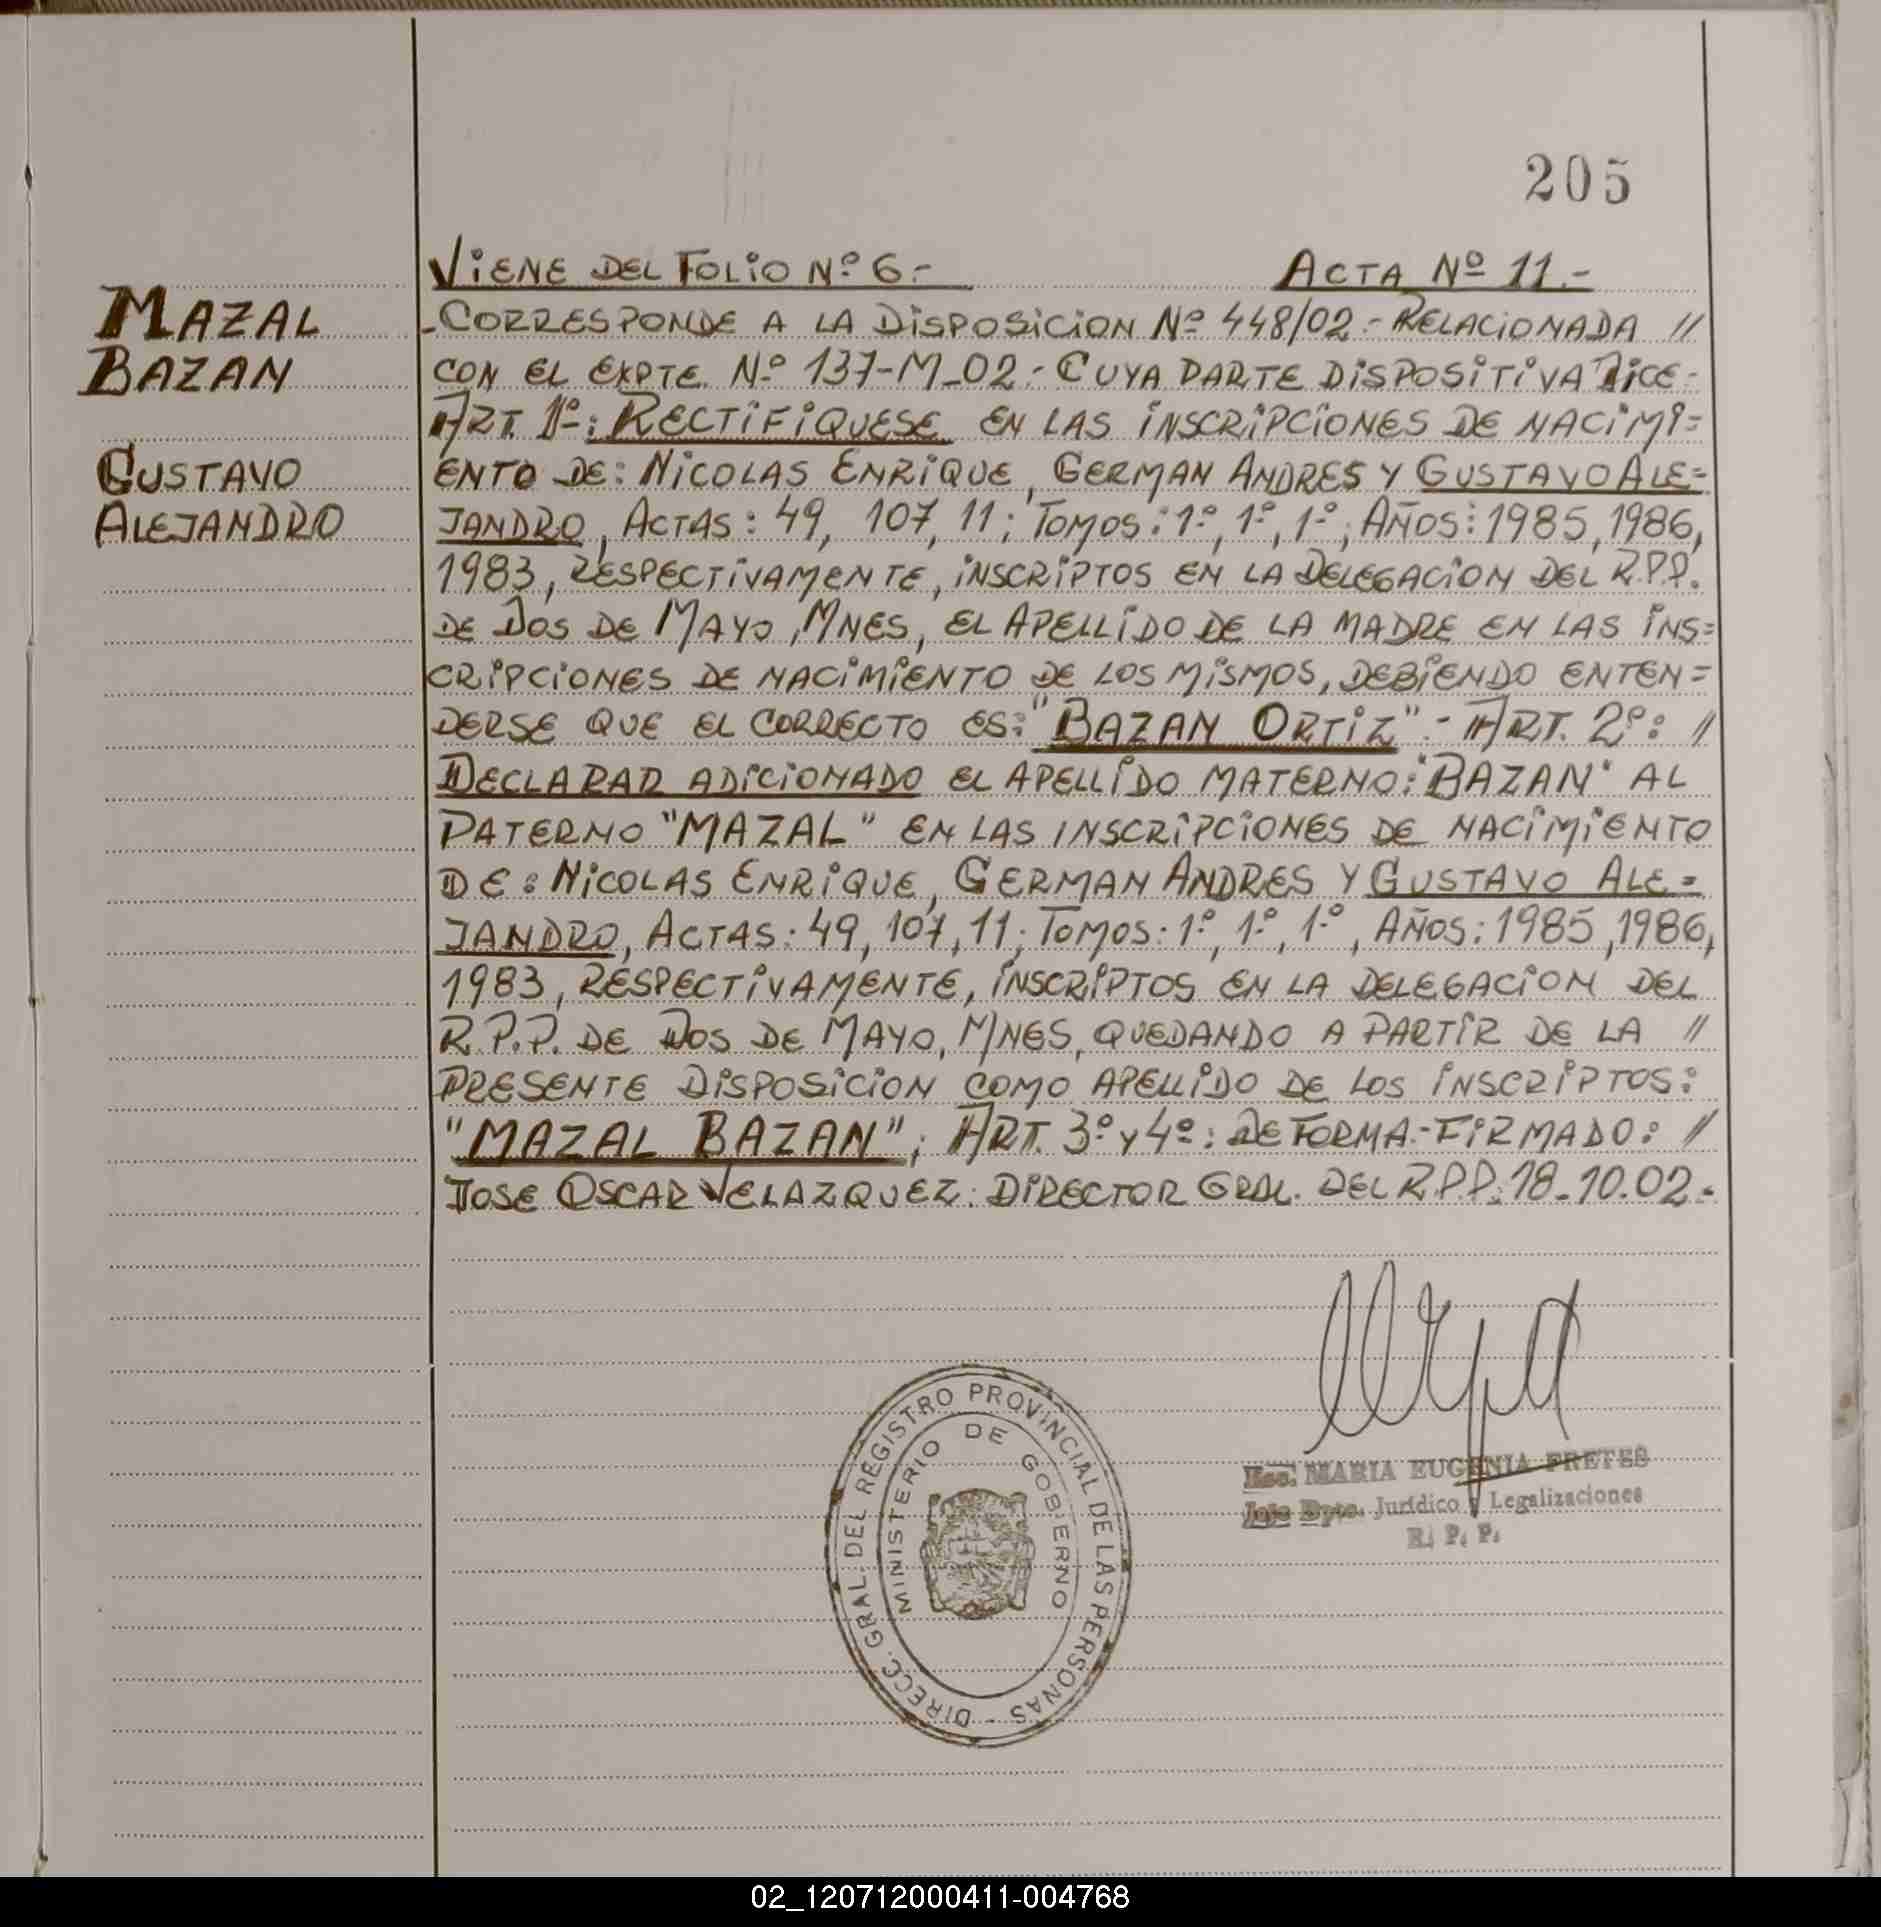 205
VIENE DEL FOLIO Nº 6.-
ACTA Nº 11.-
MAZAL
BAZAN
GUSTAVO
ALEJANDRO
-CORRESPONDE A LA DISPOSICION Nº 448/02.- RELACIONADA //
CON EL EXPTE. Nº 137-M-02.- CUYA PARTE DISPOSITIVA DICE-
ART. 1º: RECTIFIQUESE EN LAS INSCRIPCIONES DE NACIMI=
ENTO DE: NICOLAS ENRIQUE, GERMAN ANDRES Y GUSTAVO ALE=
JANDRO, ACTAS: 49, 107, 11; TOMOS: 1º, 1º, 1º; AÑOS: 1985, 1986,
1983, RESPECTIVAMENTE, INSCRIPTOS EN LA DELEGACION DEL R.P.P.
DE DOS DE MAYO, MNES, EL APELLIDO DE LA MADRE EN LAS INS=
CRIPCIONES DE NACIMIENTO DE LOS MISMOS, DEBIENDO ENTEN=
DERSE QUE EL CORRECTO ES: "BAZAN ORTIZ".- ART. 2º: //
DECLARAR ADICIONADO EL APELLIDO MATERNO: "BAZAN" AL
PATERNO "MAZAL" EN LAS INSCRIPCIONES DE NACIMIENTO
DE: NICOLAS ENRIQUE, GERMAN ANDRES Y GUSTAVO ALE=
JANDRO, ACTAS: 49, 107, 11; TOMOS: 1º, 1º, 1º, AÑOS: 1985, 1986,
1983, RESPECTIVAMENTE, INSCRIPTOS EN LA DELEGACION DEL
R.P.P. DE DOS DE MAYO, MNES, QUEDANDO A PARTIR DE LA //
PRESENTE DISPOSICION COMO APELLIDO DE LOS INSCRIPTOS:
"MAZAL BAZAN"; ART. 3º Y 4º: DE FORMA.- FIRMADO: //
JOSE OSCAR VELAZQUEZ: DIRECTOR GRAL. DEL R.P.P. 18-10.02.-
DIRECC. GRAL. DEL REGISTRO PROVINCIAL DE LAS PERSONAS -
MINISTERIO DE GOBIERNO
Esc. MARIA EUGENIA FRETES
Jefe Dpto. Jurídico y Legalizaciones
R. P. P.
02_120712000411-004768